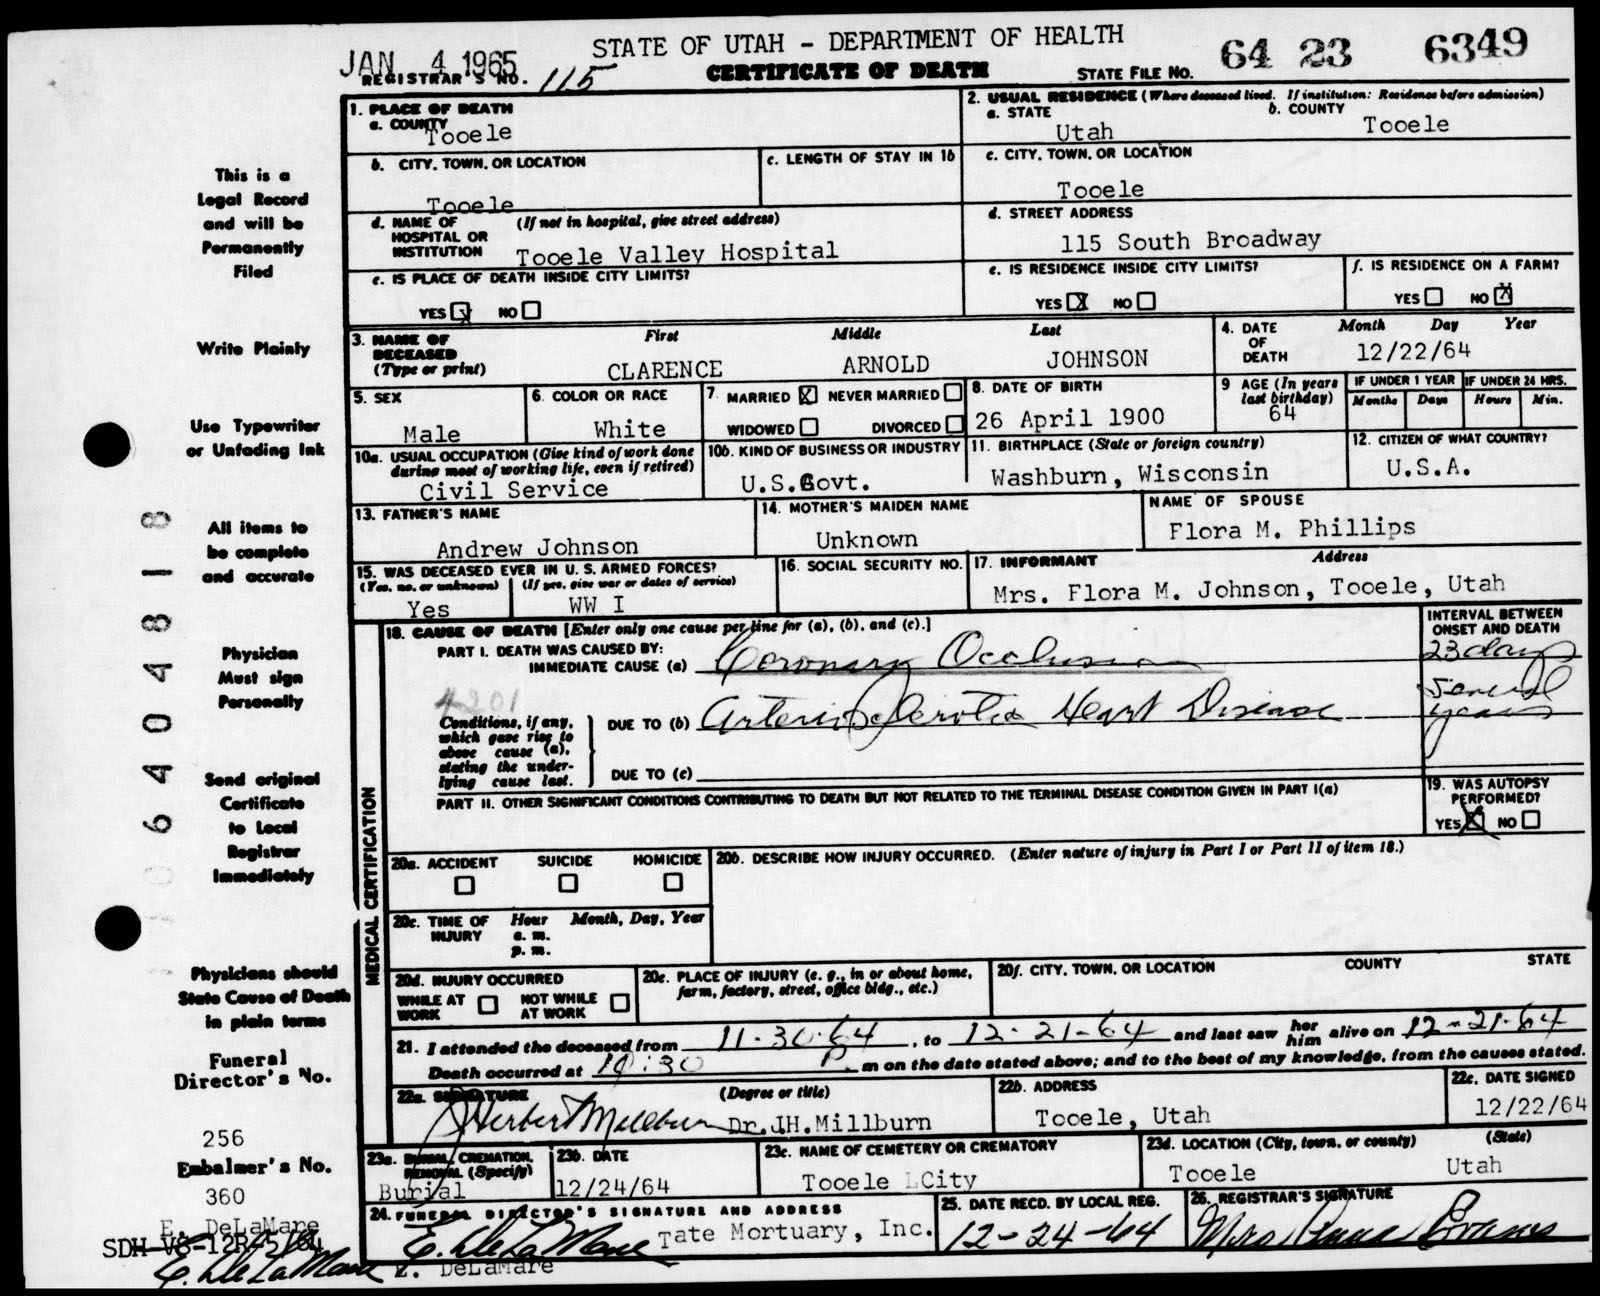 JAN 4 1965
STATE OF UTAH - DEPARTMENT OF HEALTH
64 23 6349
REGISTRAR'S NO. 115
CERTIFICATE OF DEATH
STATE FILE NO.
1. PLACE OF DEATH
a. COUNTY
Tooele
2. USUAL RESIDENCE (Where deceased lived. If institution: Residence before admission)
a. STATE
Utah
b. COUNTY
Tooele
b. CITY, TOWN, OR LOCATION
Tooele
c. LENGTH OF STAY IN 1b
c. CITY, TOWN, OR LOCATION
Tooele
d. NAME OF HOSPITAL OR INSTITUTION
(If not in hospital, give street address)
Tooele Valley Hospital
d. STREET ADDRESS
115 South Broadway
e. IS PLACE OF DEATH INSIDE CITY LIMITS?
YES X NO
e. IS RESIDENCE INSIDE CITY LIMITS?
YES X NO
f. IS RESIDENCE ON A FARM?
YES NO X
3. NAME OF DECEASED
(Type or print)
First Middle Last
CLARENCE ARNOLD JOHNSON
4. DATE OF DEATH
Month Day Year
12/22/64
5. SEX
Male
6. COLOR OR RACE
White
7. MARRIED X NEVER MARRIED
WIDOWED DIVORCED
8. DATE OF BIRTH
26 April 1900
9 AGE (In years last birthday)
64
IF UNDER 1 YEAR
Months Days
IF UNDER 24 HRS.
Hours Min.
10a. USUAL OCCUPATION (Give kind of work done during most of working life, even if retired)
Civil Service
10b. KIND OF BUSINESS OR INDUSTRY
U.S.Govt.
11. BIRTHPLACE (State or foreign country)
Washburn, Wisconsin
12. CITIZEN OF WHAT COUNTRY?
U.S.A.
13. FATHER'S NAME
Andrew Johnson
14. MOTHER'S MAIDEN NAME
Unknown
NAME OF SPOUSE
Flora M. Phillips
15. WAS DECEASED EVER IN U. S. ARMED FORCES?
(Yes, no, or unknown) (If yes, give war or dates of service)
Yes WW I
16. SOCIAL SECURITY NO.
17. INFORMANT Address
Mrs. Flora M. Johnson, Tooele, Utah
18. CAUSE OF DEATH [Enter only one cause per line for (a), (b), and (c).]
INTERVAL BETWEEN ONSET AND DEATH
PART I. DEATH WAS CAUSED BY:
IMMEDIATE CAUSE (a) Coronary Occlusion
23 days
4201
Conditions, if any, which gave rise to above cause (a), stating the underlying cause last.
DUE TO (b) Arteriosclerotic Heart Disease
Several years
DUE TO (c)
PART II. OTHER SIGNIFICANT CONDITIONS CONTRIBUTING TO DEATH BUT NOT RELATED TO THE TERMINAL DISEASE CONDITION GIVEN IN PART I(a)
19. WAS AUTOPSY PERFORMED?
YES X NO
MEDICAL CERTIFICATION
20a. ACCIDENT SUICIDE HOMICIDE
20b. DESCRIBE HOW INJURY OCCURRED. (Enter nature of injury in Part I or Part II of item 18.)
20c. TIME OF INJURY
Hour Month, Day, Year
a. m.
p. m.
20d. INJURY OCCURRED
WHILE AT WORK NOT WHILE AT WORK
20e. PLACE OF INJURY (e. g., in or about home, farm, factory, street, office bldg., etc.)
20f. CITY, TOWN, OR LOCATION COUNTY STATE
21. I attended the deceased from 11-30-64, to 12-21-64 and last saw her him alive on 12-21-64
Death occurred at 10:30 P. m on the date stated above; and to the best of my knowledge, from the causes stated.
22a. SIGNATURE (Degree or title)
J Herbert Millburn Dr. JH.Millburn
22b. ADDRESS
Tooele, Utah
22c. DATE SIGNED
12/22/64
23a. BURIAL, CREMATION, REMOVAL (Specify)
Burial
23b. DATE
12/24/64
23c. NAME OF CEMETERY OR CREMATORY
Tooele City
23d. LOCATION (City, town, or county) (State)
Tooele Utah
24. FUNERAL DIRECTOR'S SIGNATURE AND ADDRESS
E. DeLaMare Tate Mortuary, Inc.
E. DeLaMare
25. DATE RECD. BY LOCAL REG.
12-24-64
26. REGISTRAR'S SIGNATURE
Mrs Evans
This is a
Legal Record
and will be
Permanently
Filed
Write Plainly
Use Typewriter
or Unfading Ink
All items to
be complete
and accurate
Physician
Must sign
Personally
Send original
Certificate
to Local
Registrar
Immediately
Physicians should
State Cause of Death
in plain terms
Funeral
Director's No.
256
Embalmer's No.
360
E. DeLaMare
SDH-VS-12R-5/64
E. DeLaMare
0 6 4 0 4 8 1 8